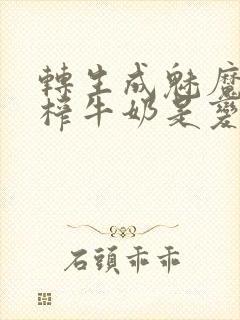 轉生成魅魔
榨牛奶是變
石頭乖乖